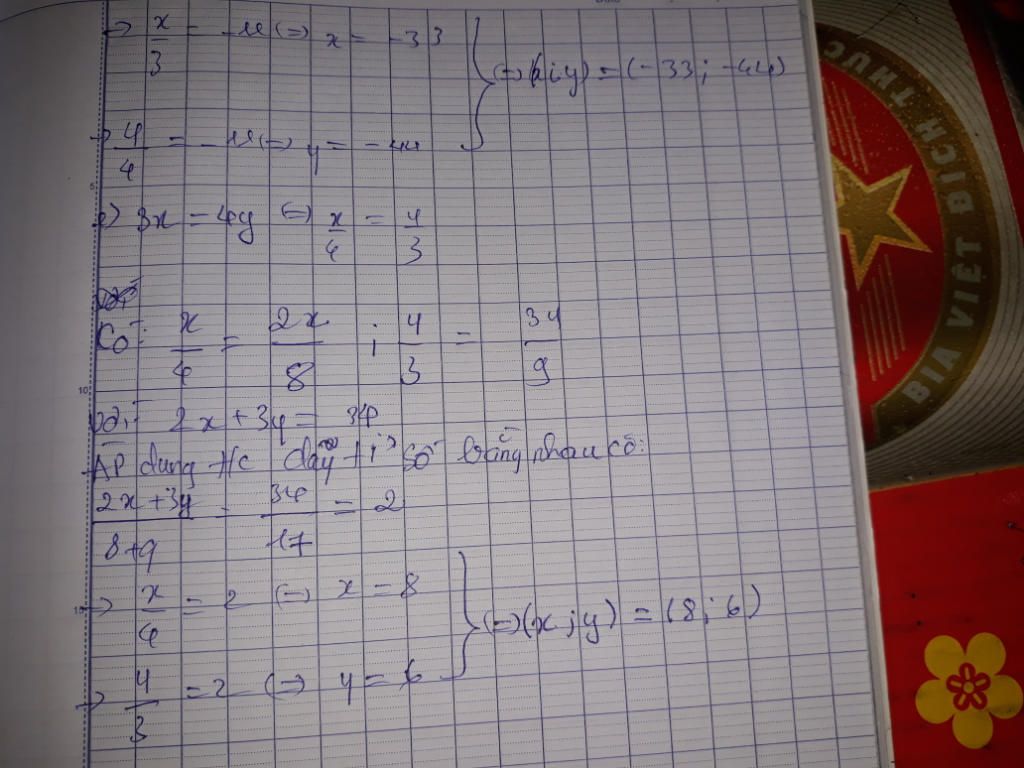 → x/3 = -11 (=) x = -33
(=) (x;y) = (-33; -44)
→ y/4 = -11 (=) y = -44
e) 3x = 4y (=) x/4 = y/3
Có: x/4 = 2x/8 ; y/3 = 3y/9
2x + 3y = 34
Áp dụng t/c dãy tỉ số bằng nhau có:
2x + 3y / 8+9 = 34/17 = 2
→ x/4 = 2 (=) x = 8
(=) (x;y) = (8; 6)
→ y/3 = 2 (=) y = 6
5
10
15
BIA VIỆT ĐÍCH THỰC